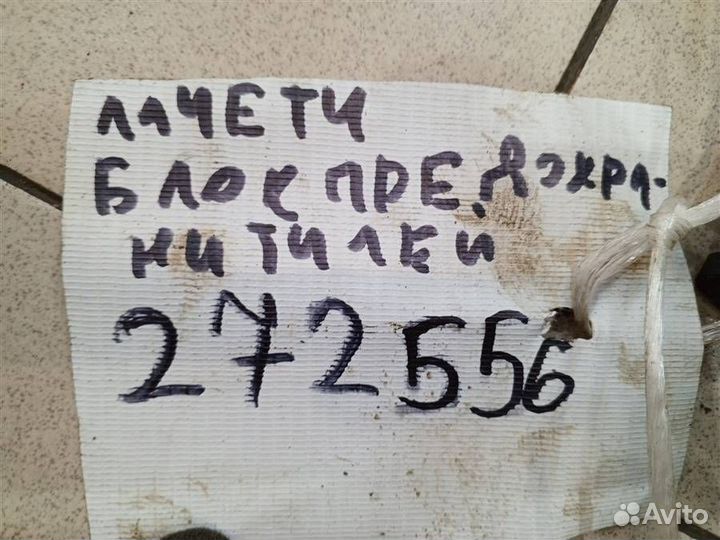 ЛАЧЕТИ
БЛОК ПРЕДОХРА-
НИТИЛЕЙ
272556
Avito